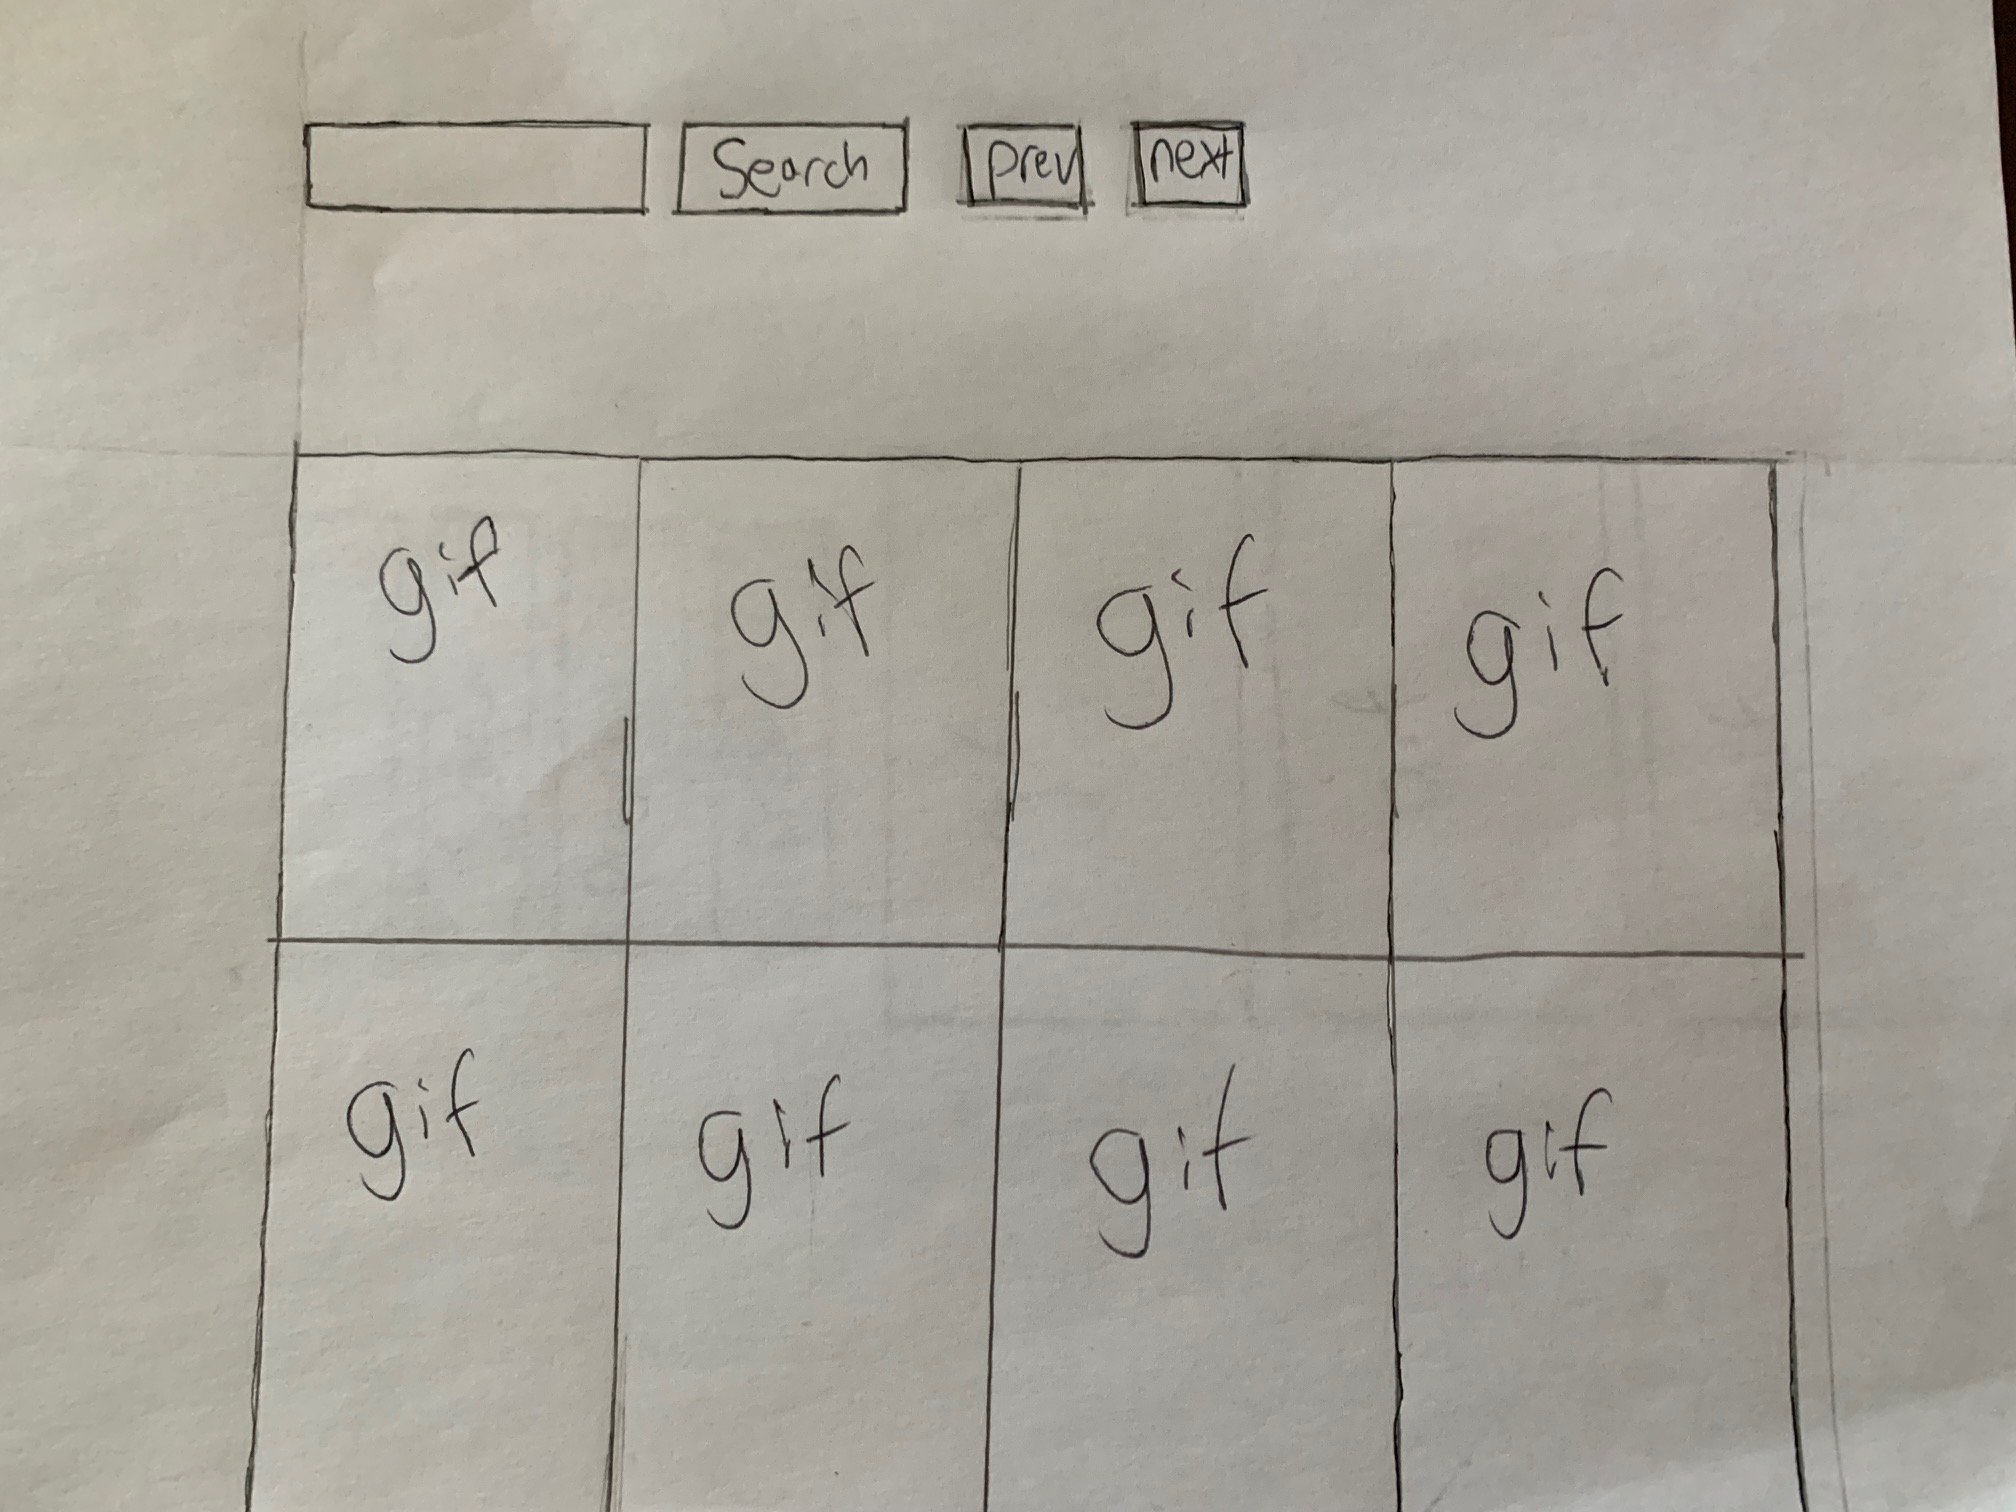 Search prev next
gif gif gif gif
gif gif gif gif